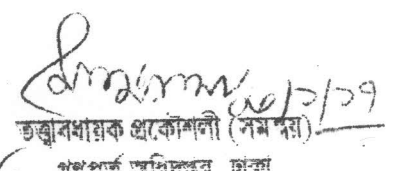 ২০/১/১৭
তত্ত্বাবধায়ক প্রকৌশলী (সমন্বয়)
গণপূর্ত অধিদপ্তর, ঢাকা